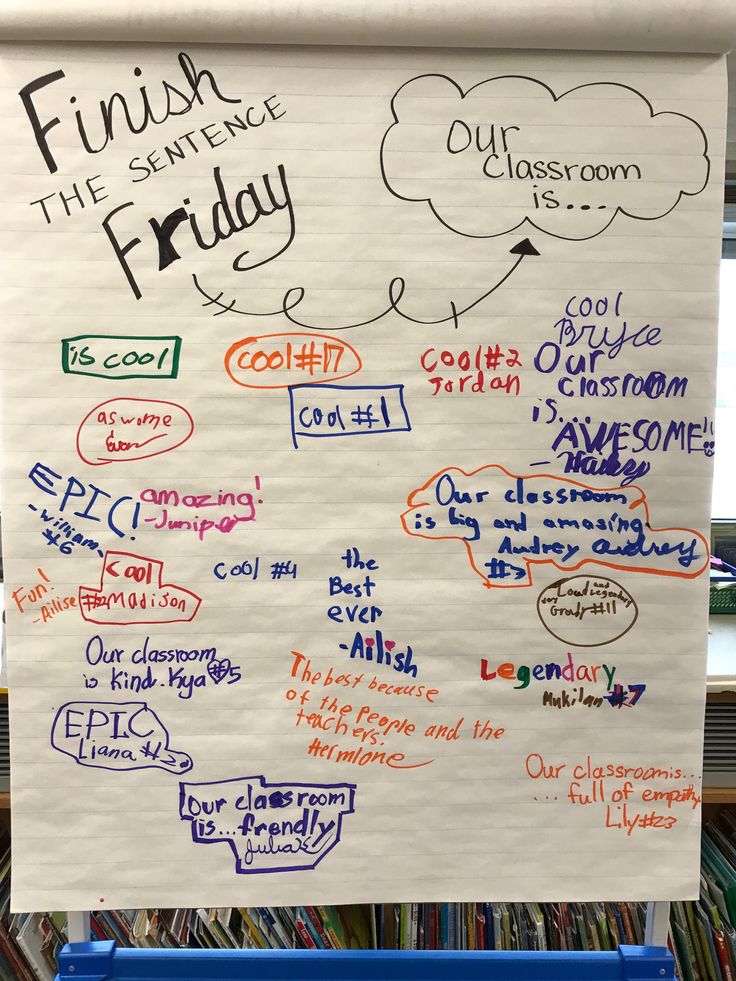 Finish
THE SENTENCE
Friday
Our
classroom
is...
is cool
cool #17
cool #2
Jordan
cool
Bryce
Our
classroom
is...
AWESOME!!
aswome
Evan
cool #1
EPIC!
-William
#6
amazing!
-Juniper
Our classroom
is big and amasing.
Audrey audrey
Fun!
-Ailise
cool
Madison
cool #4
the
Best
ever
-Ailish
very Loud and Legendary
Grady #11
Our classroom
is kind. Kya #5
The best because
of the people and the
teachers.
Hermione
Legendary
Mukilan #7
EPIC
Liana
Our classroom
is...frendly
Julia
Our classroom is...
...full of empathy
Lily #23